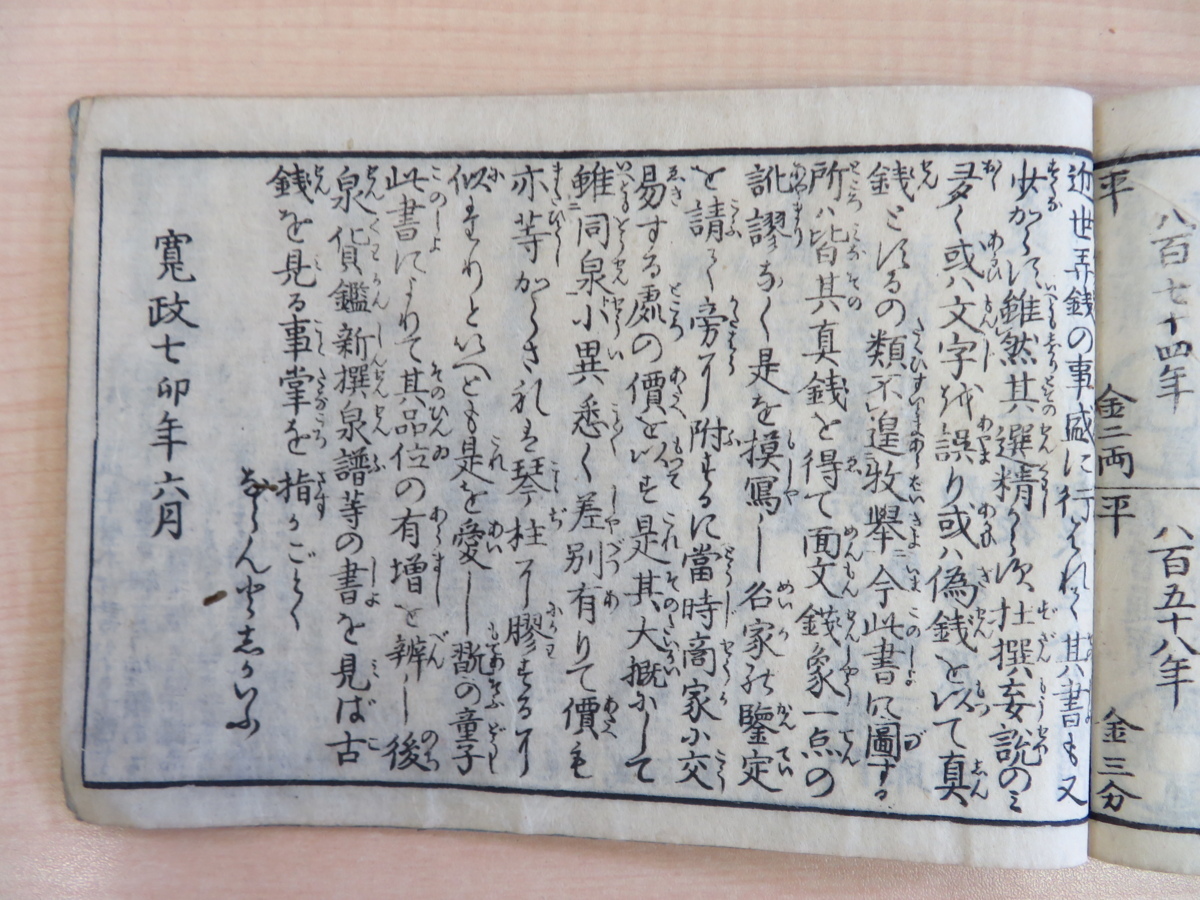 八百七十四年 金二両
八百五十八年 金三分
平
平
近世弄銭の事盛に行はれて其書も又
少からず雖然其選精からず杜撰妄説のミ
多く或ハ文字を誤り或ハ偽銭を以て真
銭とするの類不遑枚舉今此書に圖する
所ハ皆其真銭を得て面文銭象一点の
訛謬なく是を摸寫し名家の鑒定
を請て旁に附するに當時商家小交
易する處の價を以す是其大概にして
雖同泉小異悉く差別有りて價も
亦等からされは琴柱に膠するに
似たりといへとも是を愛し翫の童子
此書によりて其品位の有増を辨し後
泉貨鑑新撰泉譜等の書を見ば古
銭を見る事掌を指がごとく
ならんと志かいふ
寛政七卯年六月